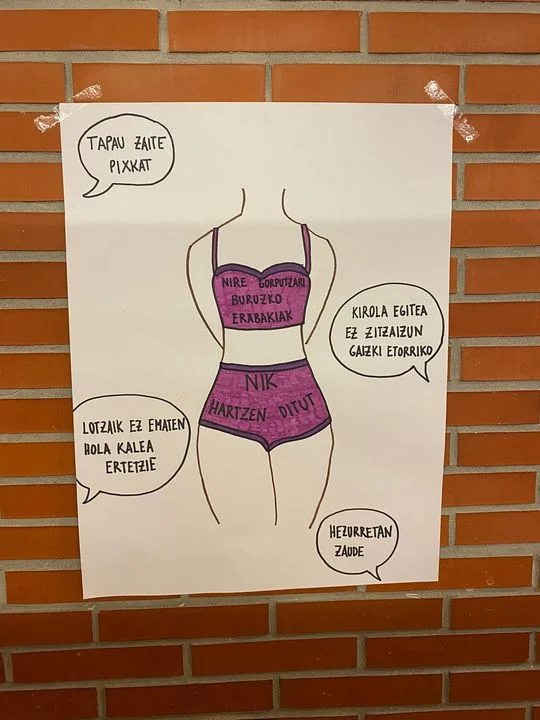 TAPAU ZAITE
PIXKAT
NIRE GORPUTZARI
BURUZKO
ERABAKIAK
NIK
HARTZEN DITUT
KIROLA EGITEA
EZ ZITZAIZUN
GAIZKI ETORRIKO
LOTZAIK EZ EMATEN
HOLA KALEA
ERTETZIE
HEZURRETAN
ZAUDE